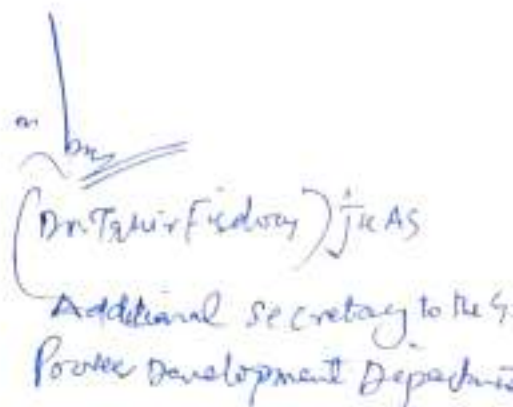 (Dr. Tahir Firdous) JKAS
Additional secretary to the G
Power Development Departme